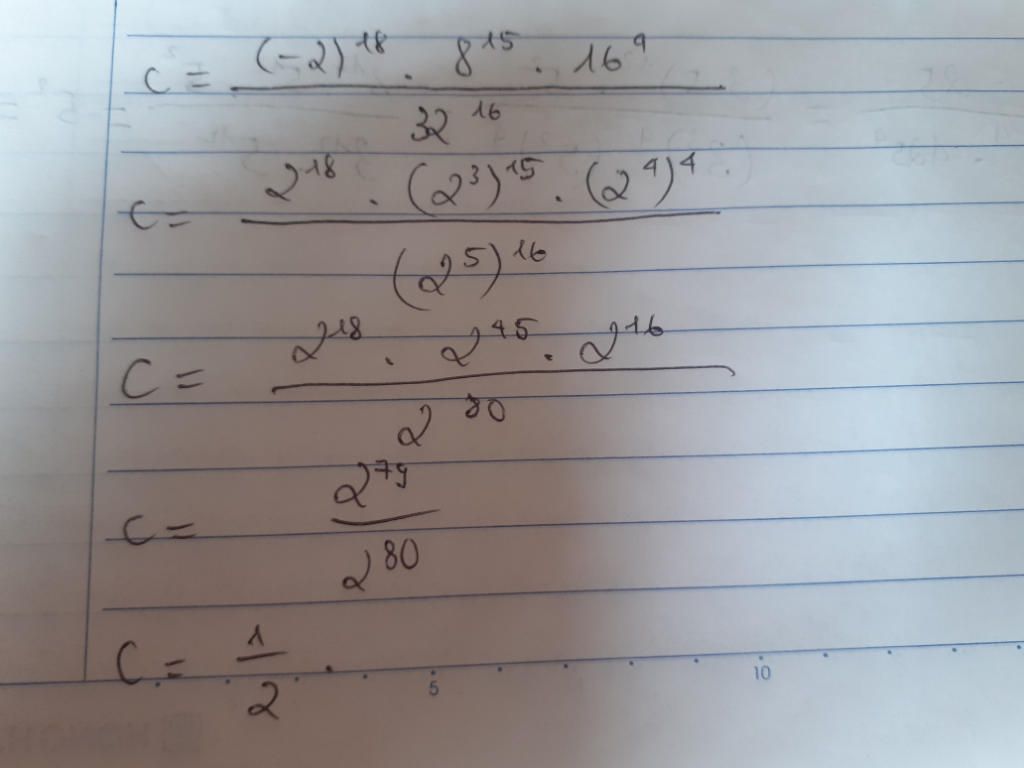 C = \frac{(-2)^{18} . 8^{15} . 16^{4}}{32^{16}}
C = \frac{2^{18} . (2^{3})^{15} . (2^{4})^{4}}{(2^{5})^{16}}
C = \frac{2^{18} . 2^{45} . 2^{16}}{2^{80}}
C = \frac{2^{79}}{2^{80}}
C = \frac{1}{2} .
5 10